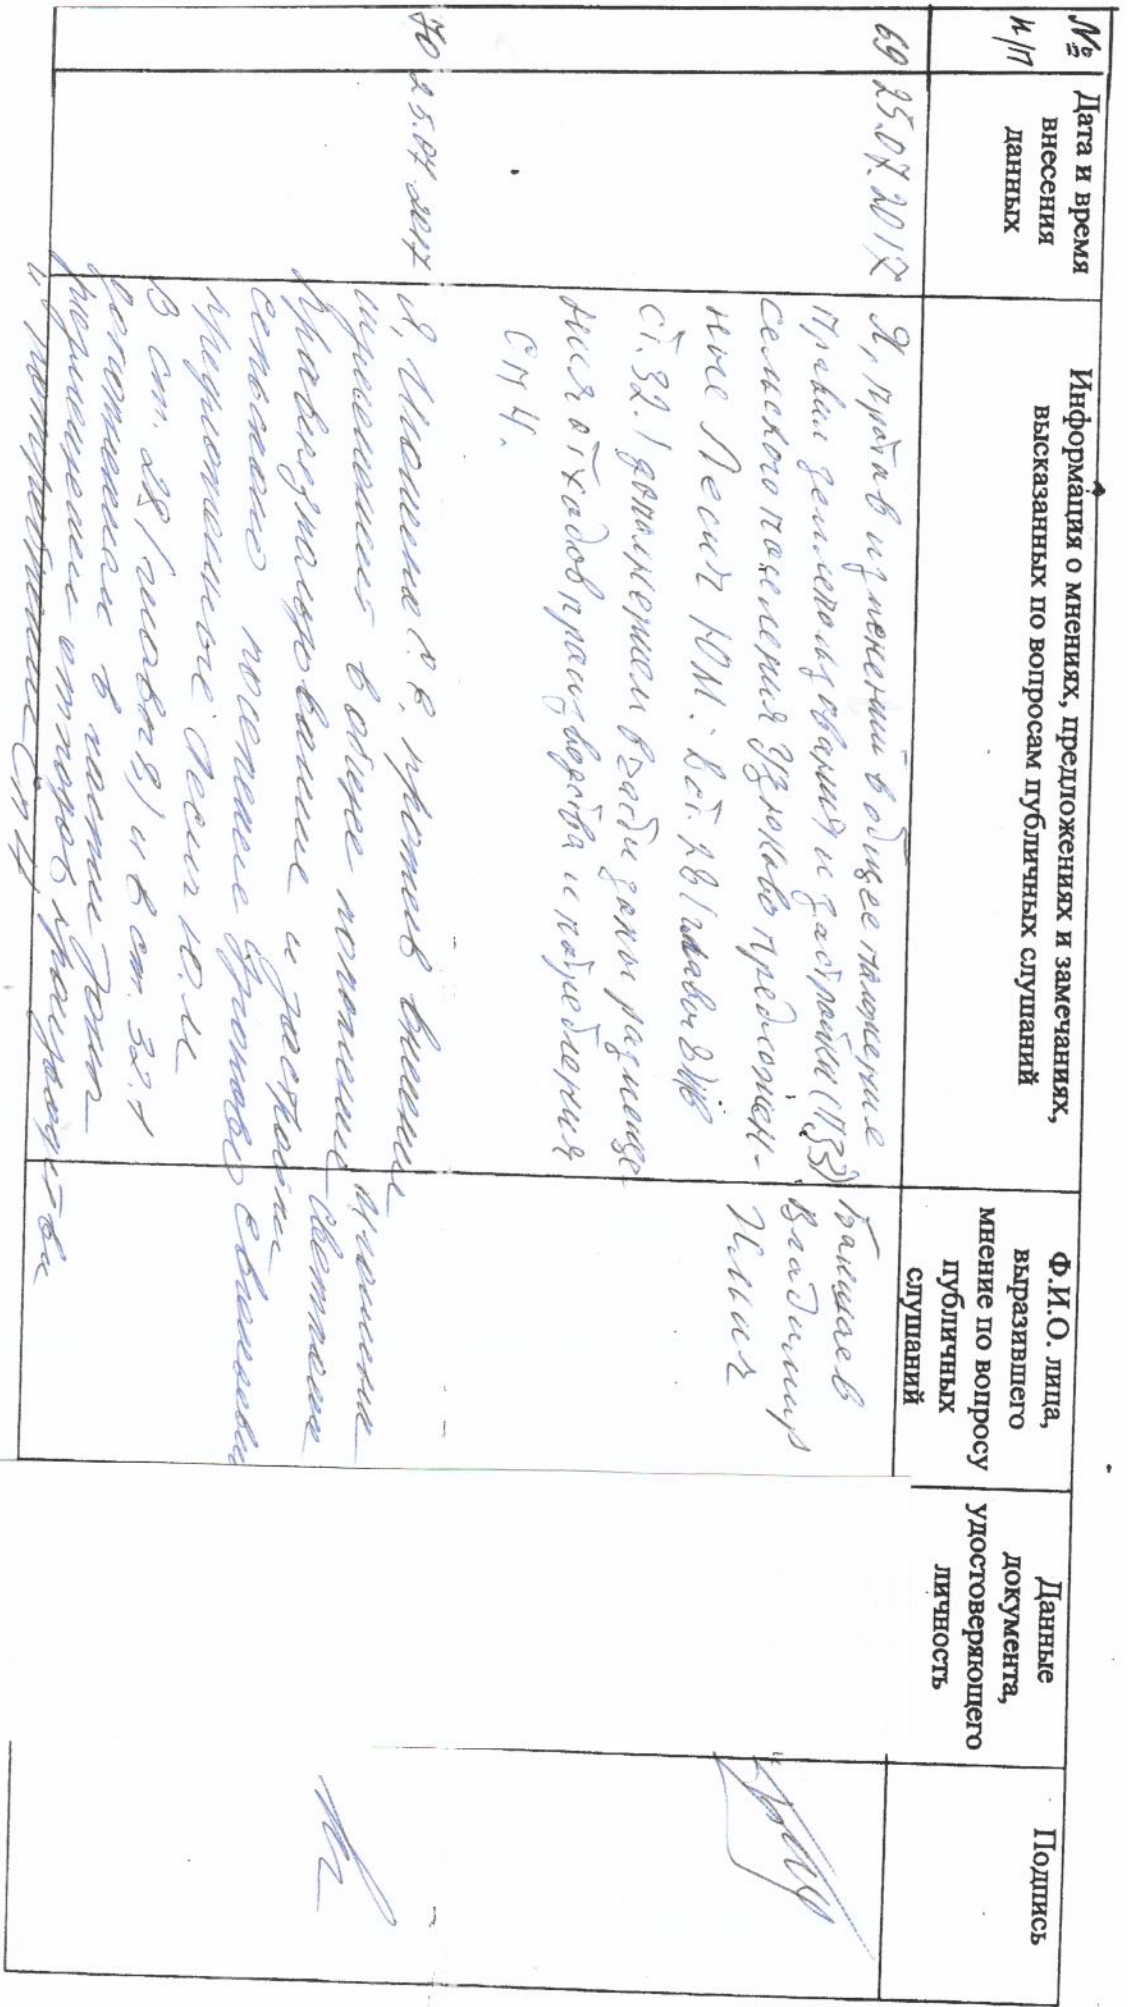 № п/п
Дата и время внесения данных
Информация о мнениях, предложениях и замечаниях, высказанных по вопросам публичных слушаний
Ф.И.О. лица, выразившего мнение по вопросу публичных слушаний
Данные документа, удостоверяющего личность
Подпись
69
25.07.2017
Я, против изменений в общее положение
Правил землепользования и застройки (ПЗЗ)
сельского поселения Узюково предложен-
ные Лесин Ю.М. В ст. 28 главы 8 и в
ст. 32.1 дополнением в части зоны размеще
ния отходов производства и потребления
СП4.
Владимир
Ильич
70
25.07.2017
Я, против
в общее положение
Правил землепользование и застройки
сельского поселение Узюково
предложенные Лесин Ю.М
В ст. 28 (глава 8) и в ст. 32.1
дополнением в части зоны
размещение отходов производства
и потребление СП4
Светлана